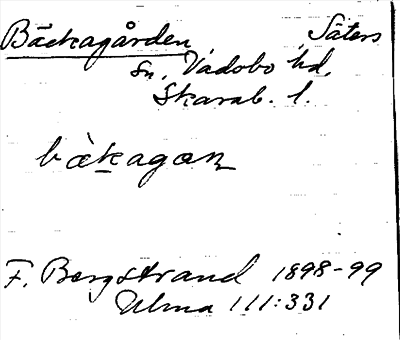 Bäckagården Säters
sn, Vadsbo hd,
Skarab. l.
bæ̀kagaɳ
F. Bergstrand 1898-99
Ulma 111:331